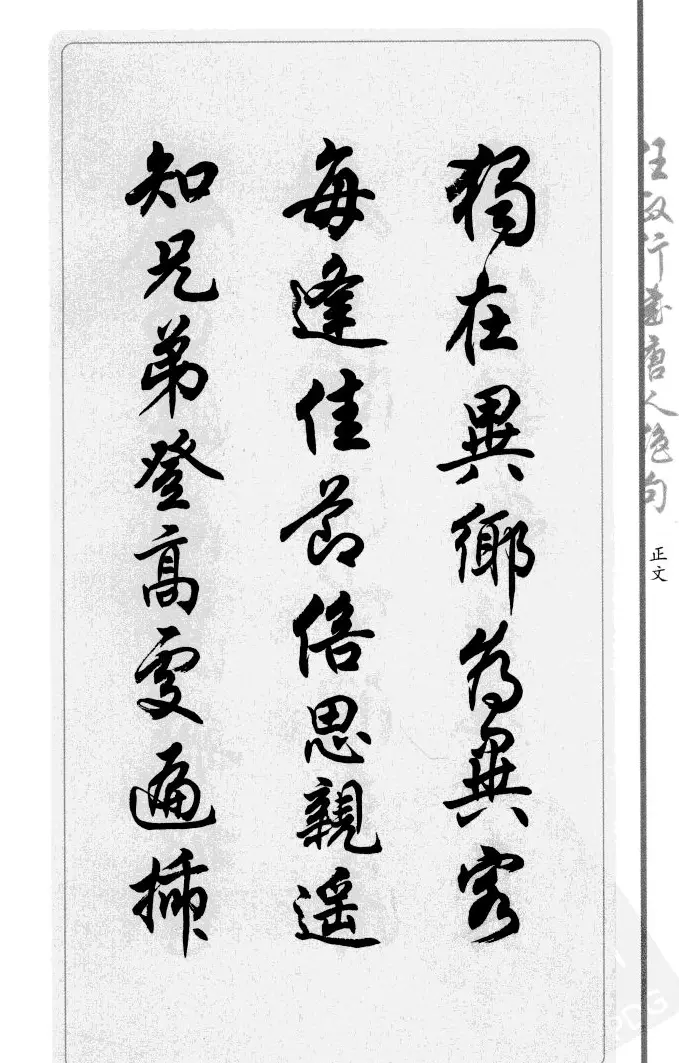 獨在異鄉為異客
每逢佳節倍思親遥
知兄弟登高處遍插
任政行書唐人絕句
正文